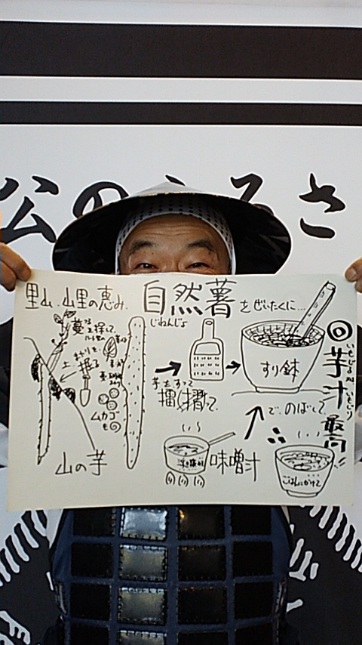 公のふるさ
里山、山里の恵み
自然薯をぜいたくに…
じねんじょ
土
掘って
ムカゴ
も◎
山の芋
芋をすって
擂く擂て
すり鉢
味噌汁
で のばして
◎芋汁 最高!!
ごはんにかけて